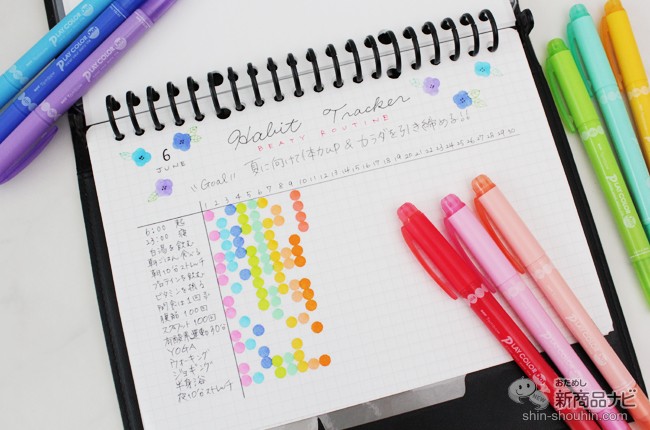 Habit Tracker
BEATY ROUTINE
6
JUNE
"Goal" 夏に向けて体力up & カラダを引き締める!!
1 2 3 4 5 6 7 8 9 10 11 12 13 14 15 16 17 18 19 20 21 22 23 24 25 26 27 28 29 30
6:00 起
23:00 寝
白湯を飲む
朝ごはん食べる
朝10分ストレッチ
プロテインを飲む
ビタミンを摂る
間食は1回まで
腹筋 100回
スクワット 100回
有酸素運動30分
YOGA
ウォーキング
ジョギング
半身浴
夜10分ストレッチ
PLAY COLOR
PLAY COLOR
PLAY COLOR
PLAY COLOR
PLAY COLOR
PLAY COLOR
NEW
おためし
新商品ナビ
shin-shouhin.com